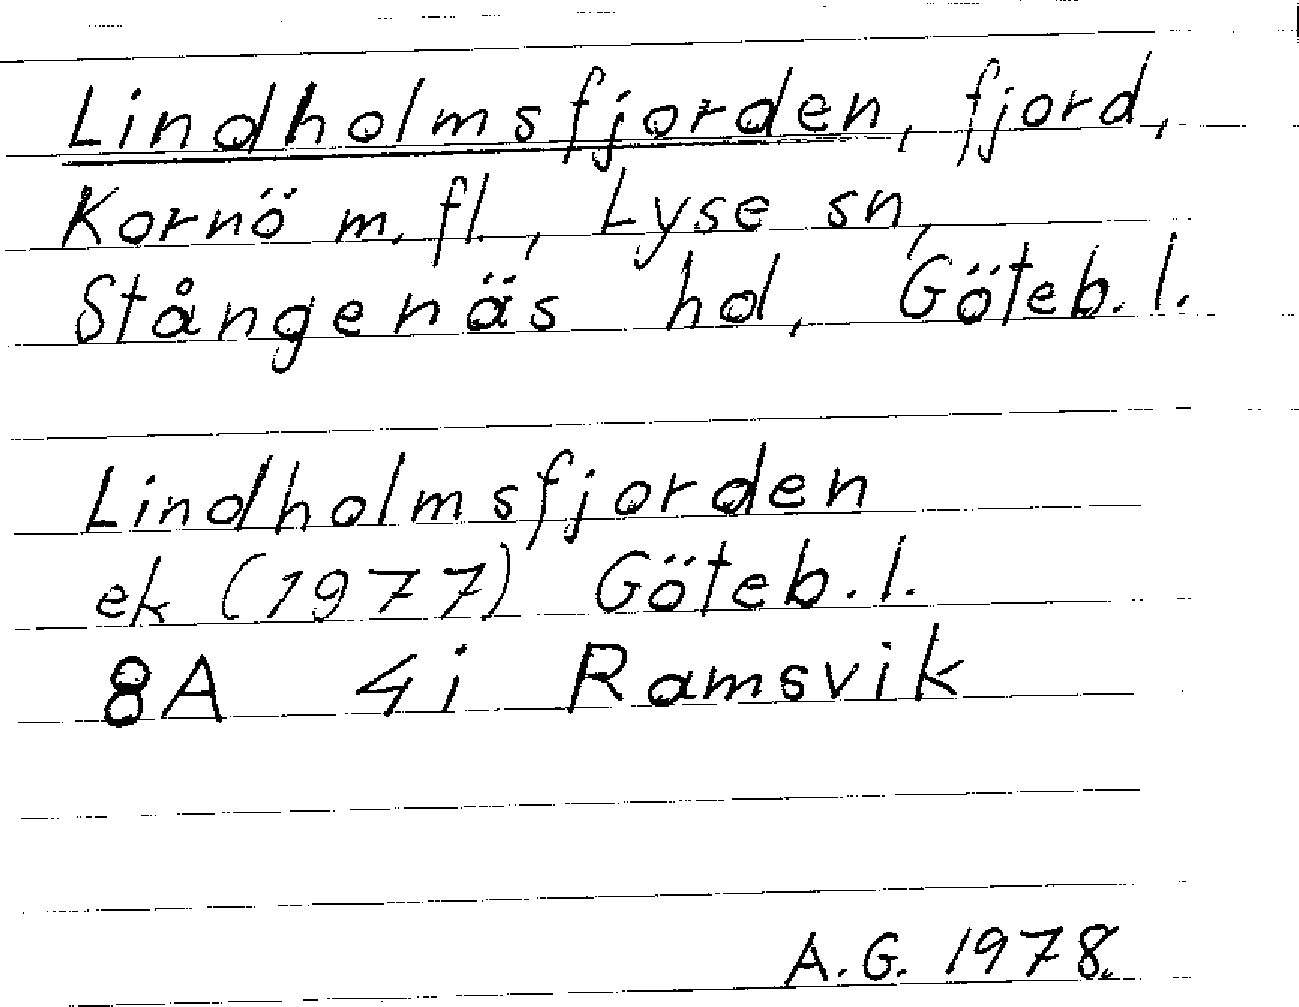 Lindholmsfjorden, fjord,
Kornö m.fl., Lyse sn,
Stångenäs hd, Göteb.l.
Lindholmsfjorden
ek (1977) Göteb.l.
8A 4i Ramsvik
A.G. 1978.